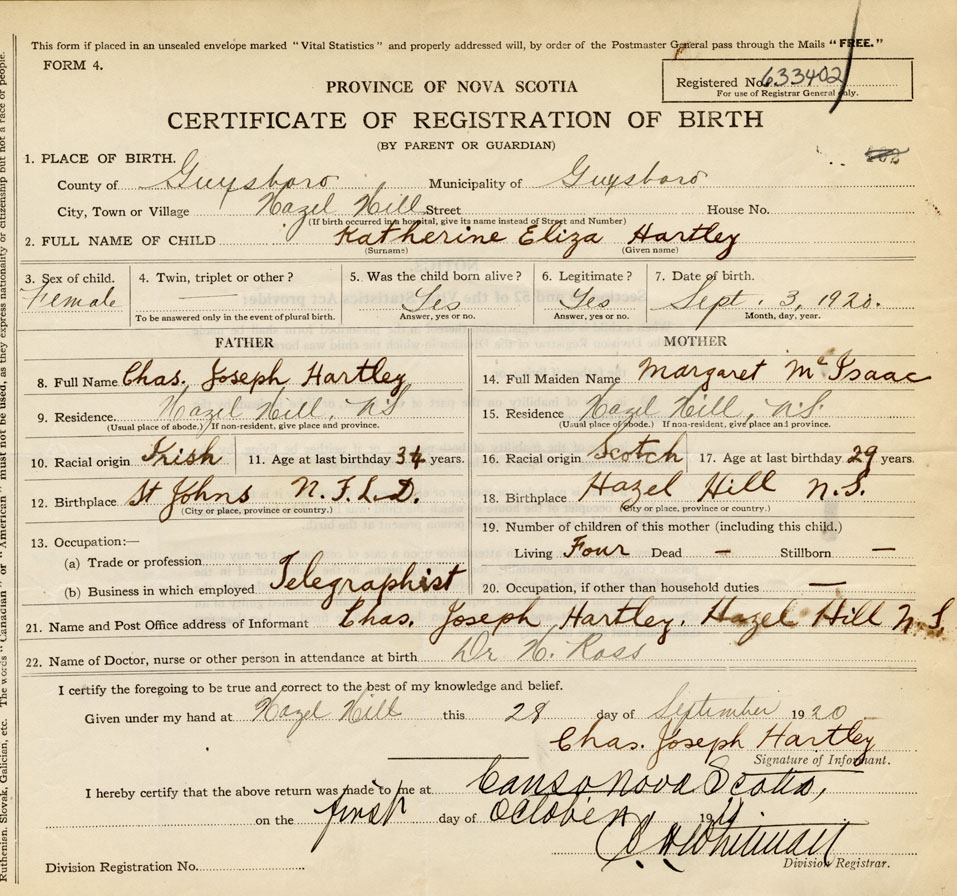 This form if placed in an unsealed envelope marked "Vital Statistics" and properly addressed will, by order of the Postmaster General pass through the Mails "FREE."
FORM 4.
Registered No. 633402
For use of Registrar General only.
PROVINCE OF NOVA SCOTIA
CERTIFICATE OF REGISTRATION OF BIRTH
(BY PARENT OR GUARDIAN)
1. PLACE OF BIRTH.
County of Guysboro Municipality of Guysboro
City, Town or Village Hazel Hill Street House No.
(If birth occurred in a hospital, give its name instead of Street and Number)
2. FULL NAME OF CHILD Katherine Eliza Hartley
(Surname) (Given name)
3. Sex of child. 4. Twin, triplet or other? 5. Was the child born alive? 6. Legitimate? 7. Date of birth.
Female — Yes Yes Sept. 3, 1920.
To be answered only in the event of plural birth. Answer, yes or no. Answer, yes or no. Month, day, year.
FATHER
8. Full Name Chas. Joseph Hartley
9. Residence Hazel Hill, N.S.
(Usual place of abode.) If non-resident, give place and province.
10. Racial origin Irish 11. Age at last birthday 34 years.
12. Birthplace St Johns N.F.L.D.
(City or place, province or country.)
13. Occupation:—
(a) Trade or profession
(b) Business in which employed Telegraphist
MOTHER
14. Full Maiden Name Margaret McIsaac
15. Residence Hazel Hill, N.S.
(Usual place of abode.) If non-resident, give place and province.
16. Racial origin Scotch 17. Age at last birthday 29 years.
18. Birthplace Hazel Hill N.S.
(City or place, province or country.)
19. Number of children of this mother (including this child.)
Living Four Dead — Stillborn —
20. Occupation, if other than household duties —
21. Name and Post Office address of Informant Chas. Joseph Hartley. Hazel Hill N.S.
22. Name of Doctor, nurse or other person in attendance at birth Dr N. Ross
I certify the foregoing to be true and correct to the best of my knowledge and belief.
Given under my hand at Hazel Hill this 28 day of September 1920
Chas. Joseph Hartley
Signature of Informant.
I hereby certify that the above return was made to me at Canso Nova Scotia,
on the first day of October 19
Whitman
Division Registrar.
Division Registration No.
Ruthenian, Slovak, Galician, etc. The words "Canadian" or "American" must not be used, as they express nationality or citizenship but not a race or people.